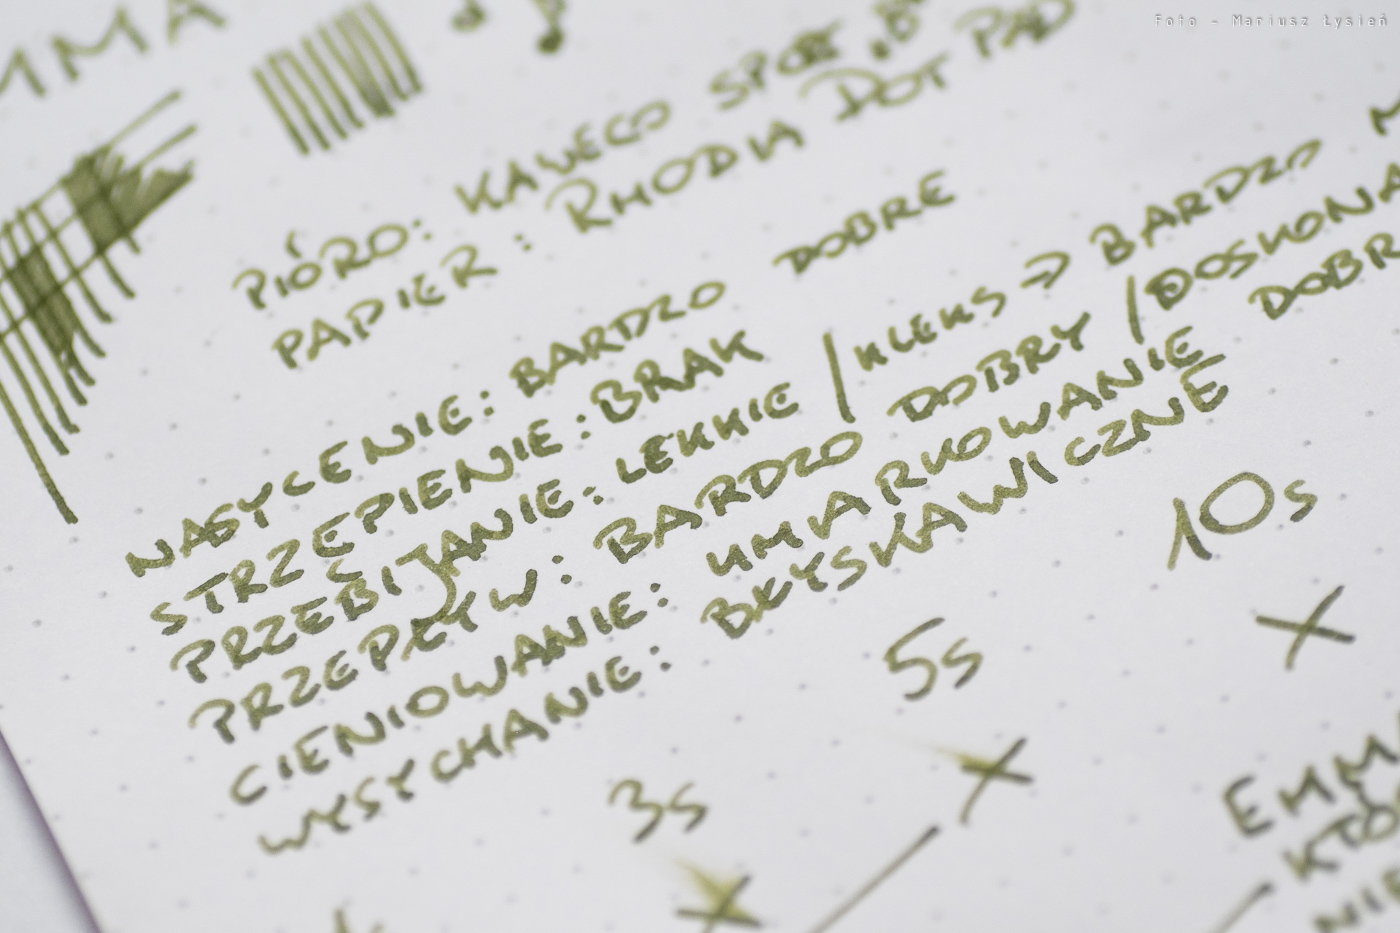 Foto - Mariusz Łysień
PIÓRO: KAWECO SPORT „B"
PAPIER: RHODIA DOT PAD
NASYCENIE: BARDZO DOBRE
STRZĘPIENIE: BRAK
PRZEBIJANIE: LEKKIE / KLEKS → BARDZO
PRZEPŁYW: BARDZO DOBRY / DOSKONA
CIENIOWANIE: UMIARKOWANIE DOBR
WYSYCHANIE: BŁYSKAWICZNE
3s 5s 10s
EMMA
KTÓ
NIE